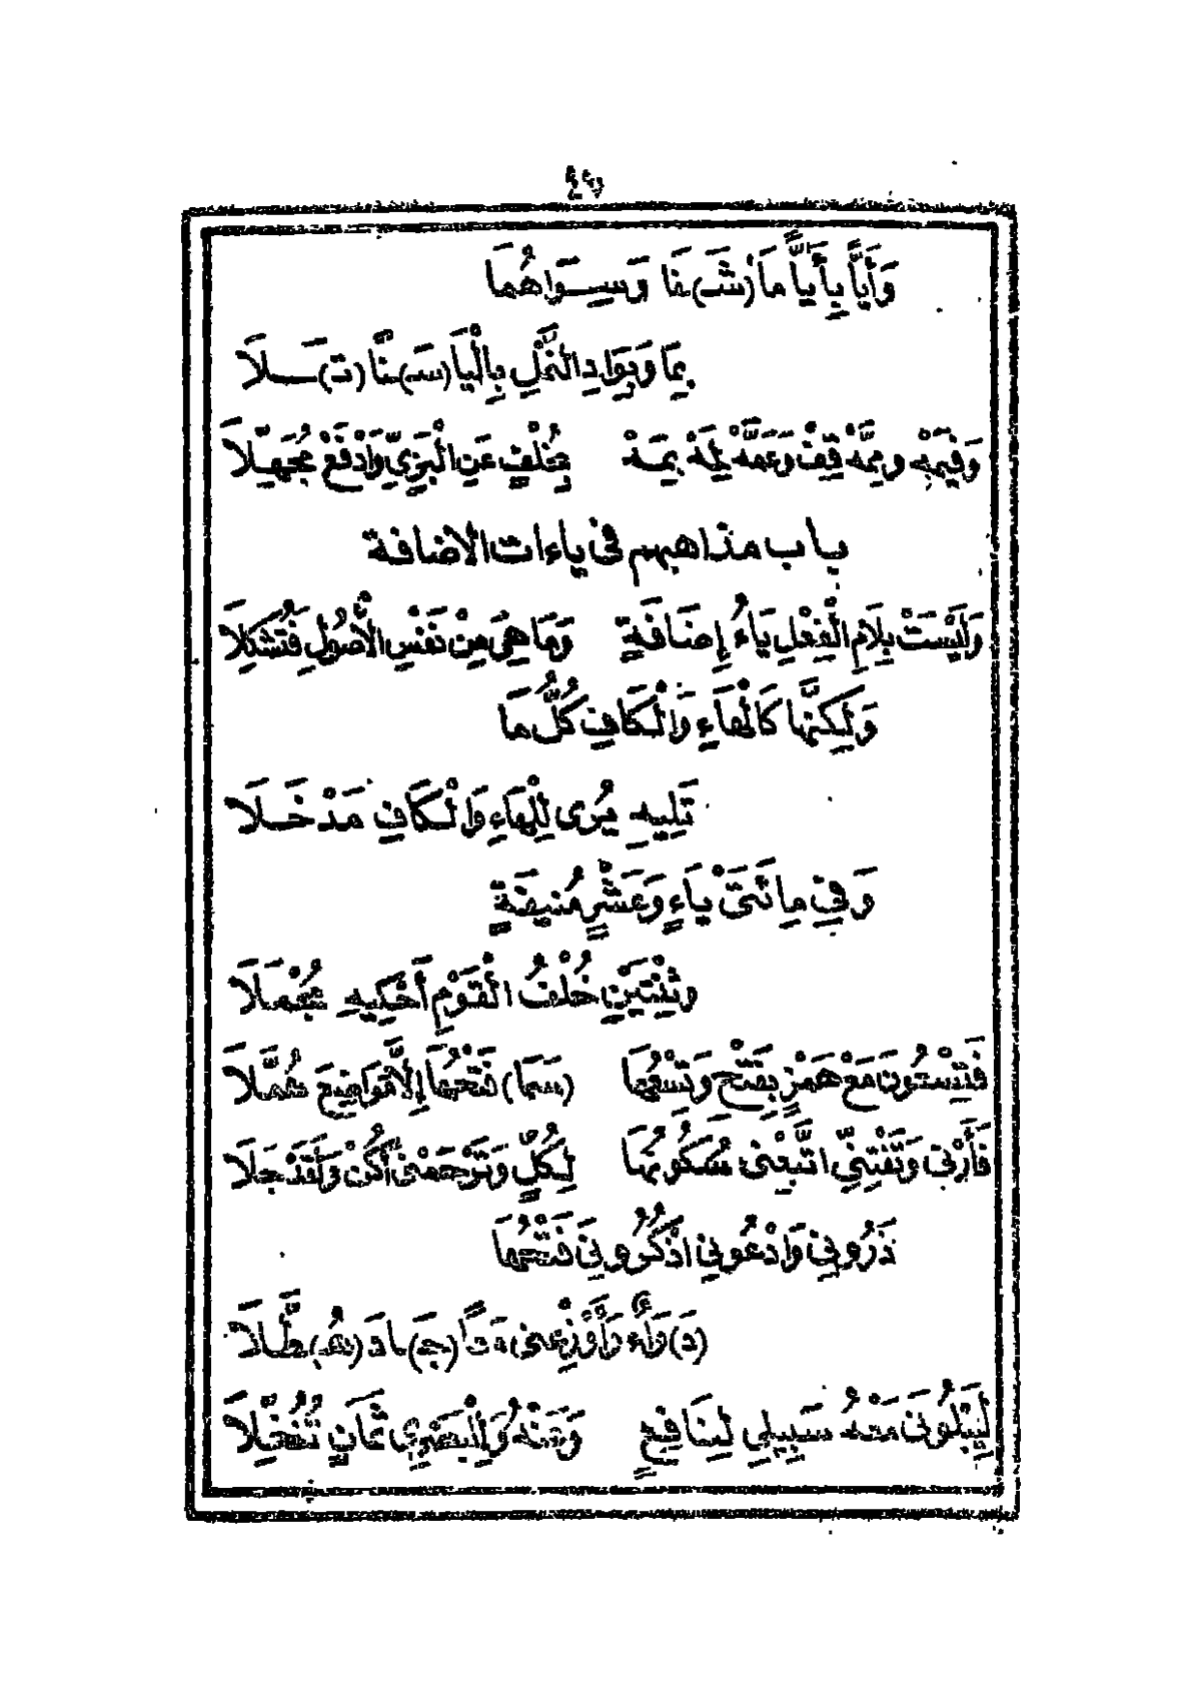 وَأَيًّا بِأَيًّا مَا (شَـ)ـفَا وَسِوَاهُمَا
بِمَا وَبِوَادِ النَّمْلِ بِالْيَا (سَـ)ـنًّا (تَـ)ـلَا
وَفِيمَهْ وَمِمَّهْ قِفْ وَعَمَّهْ لِمَهْ بِمَهْ بِخُلْفٍ عَنِ الْبَزِّيِّ وَادْفَعْ مُجَهِّلَا
باب مذاهبهم فى ياءات الاضافة
وَلَيْسَتْ بِلَامِ الْفِعْلِ يَاءُ إِضَافَةٍ وَمَا هِيَ مِنْ نَفْسِ الْأُصُولِ فَتُشْكِلَا
وَلَكِنَّهَا كَالْهَاءِ وَالْكَافِ كُلُّ مَا
تَلِيهِ يُرَى لِلْهَاءِ وَالْكَافِ مَدْخَلَا
وَفِي مِائَتَيْ يَاءٍ وَعَشْرٍ مُنِيفَةٍ
وَثِنْتَيْنِ خُلْفُ الْقَوْمِ أَحْكِيهِ مُجْمَلَا
فَتِسْعُونَ مَعْ هَمْزٍ بِفَتْحٍ وَتِسْعُهَا (سَمَا) فَتْحُهَا إِلَّا مَوَاضِعَ هُمَّلَا
فَأَرْنِى وَتَفْتِنِّى اتَّبِعْنِى سُكُونُهَا لِكُلٍّ وَتَرْحَمْنِى أَكُنْ وَلَقَدْ جَلَا
ذَرُونِي وَادْعُونِي اذْكُرُونِيَ فَتْحُهَا
(دَ)وَاءٌ وَأَوْزِعْنِى مَعًا (جَـ)ـادَ (هُـ)ـطَّلَا
لِيَبْلُوَنِى مَعْهُ سَبِيلِي لِنَافِعٍ وَعَنْهُ وَلِلْبَصْرِي ثَمَانٍ تُنُخِّلَا